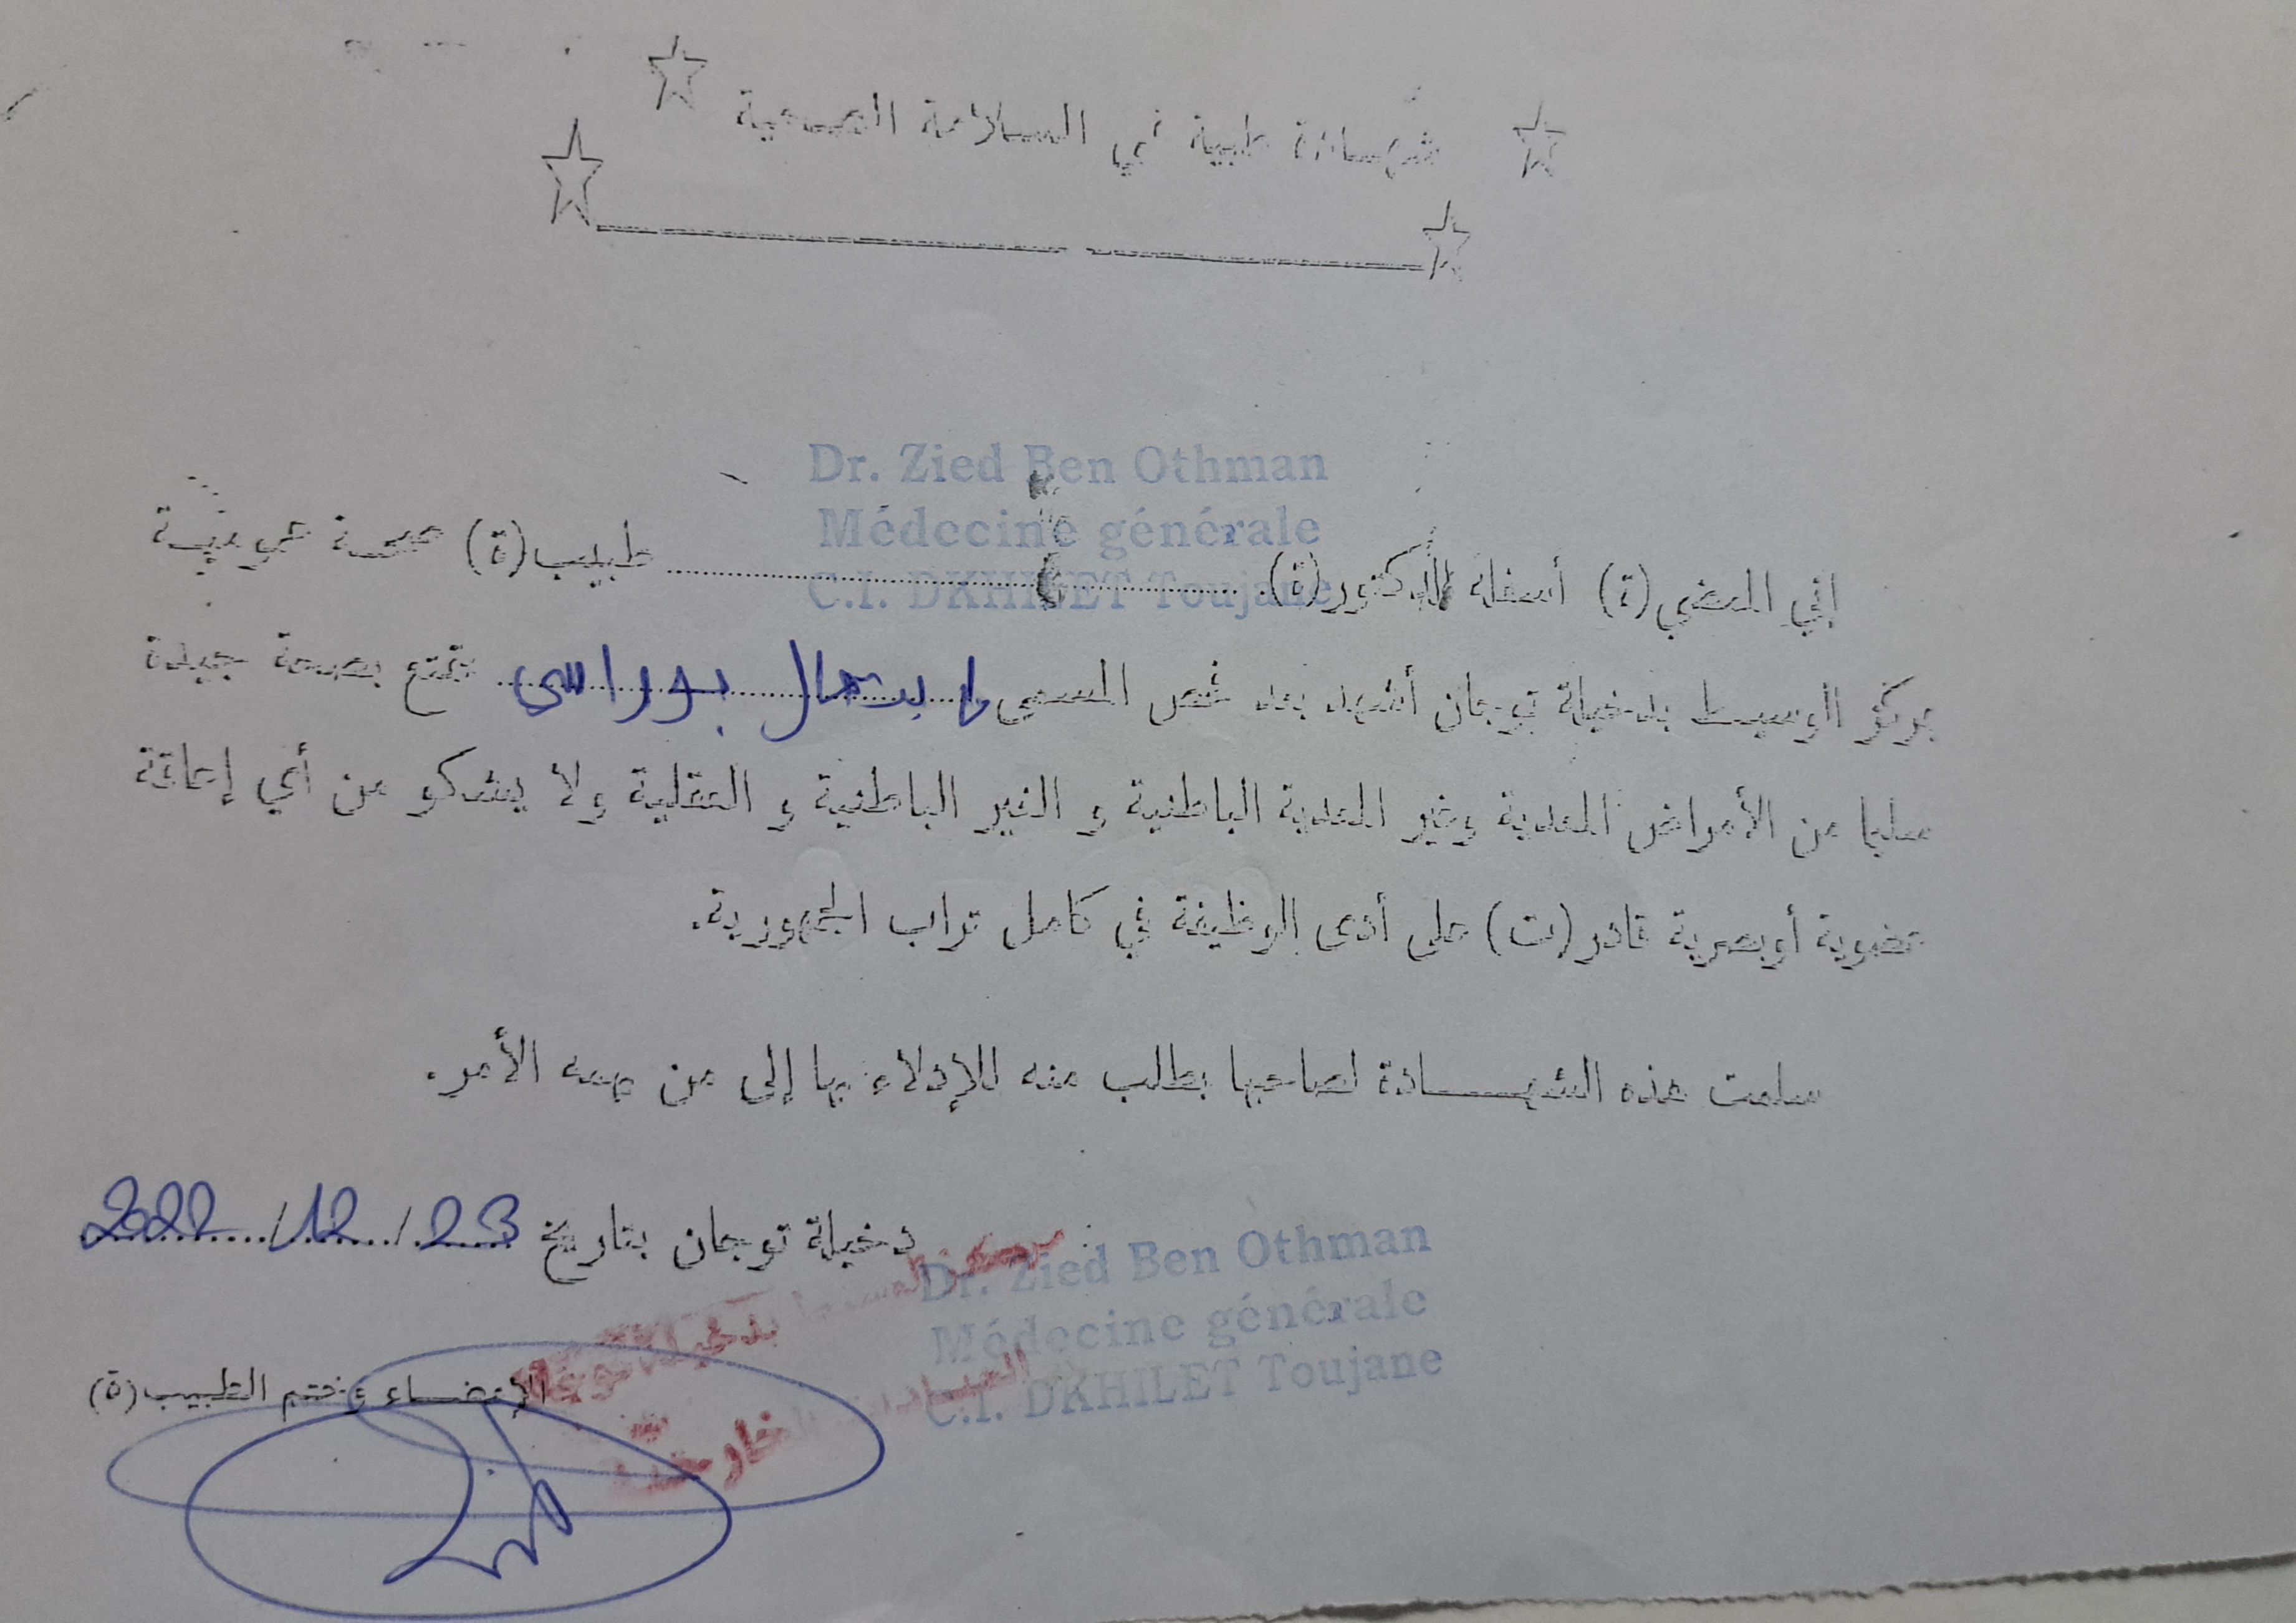 شهادة طبية في السلامة الصحية
Dr. Zied Ben Othman
Médecine générale
C.I. DKHILET Toujane
إني الممضي(ة) أسفله الدكتور(ة) طبيب(ة) صحة عمومية
بمركز الوسيط بدخيلة توجان أشهد بعد فحص المسمى ابتهال بوراسي تمتع بصحة جيدة
سليما من الأمراض المعدية وغير المعدية الباطنية و الغير الباطنية و العقلية ولا يشكو من أي إعاقة
عضوية أوبصرية قادر(ت) على أدى الوظيفة في كامل تراب الجمهورية.
سلمت هذه الشهادة لصاحبها بطلب منه للإدلاء بها إلى من يهمه الأمر.
دخيلة توجان بتاريخ 23/12/2022
Dr. Zied Ben Othman
Médecine générale
C.I. DKHILET Toujane
الإمضاء وختم الطبيب(ة)